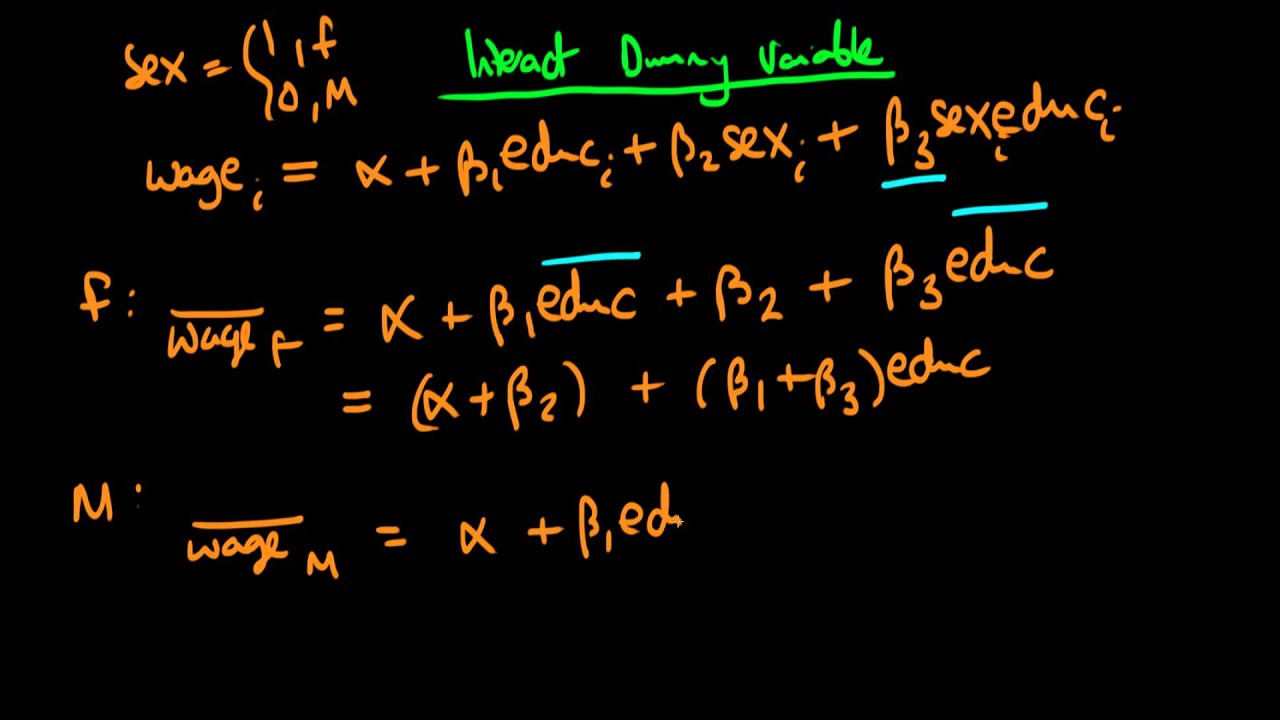 Interact Dummy Variable
sex = { 1, f
0, M
wageᵢ = α + β₁educᵢ + β₂sexᵢ + β₃sexᵢeducᵢ
f: w̅a̅g̅e̅_F = α + β₁e̅d̅u̅c̅ + β₂ + β₃e̅d̅u̅c̅
= (α + β₂) + (β₁ + β₃)educ
M: w̅a̅g̅e̅_M = α + β₁ed